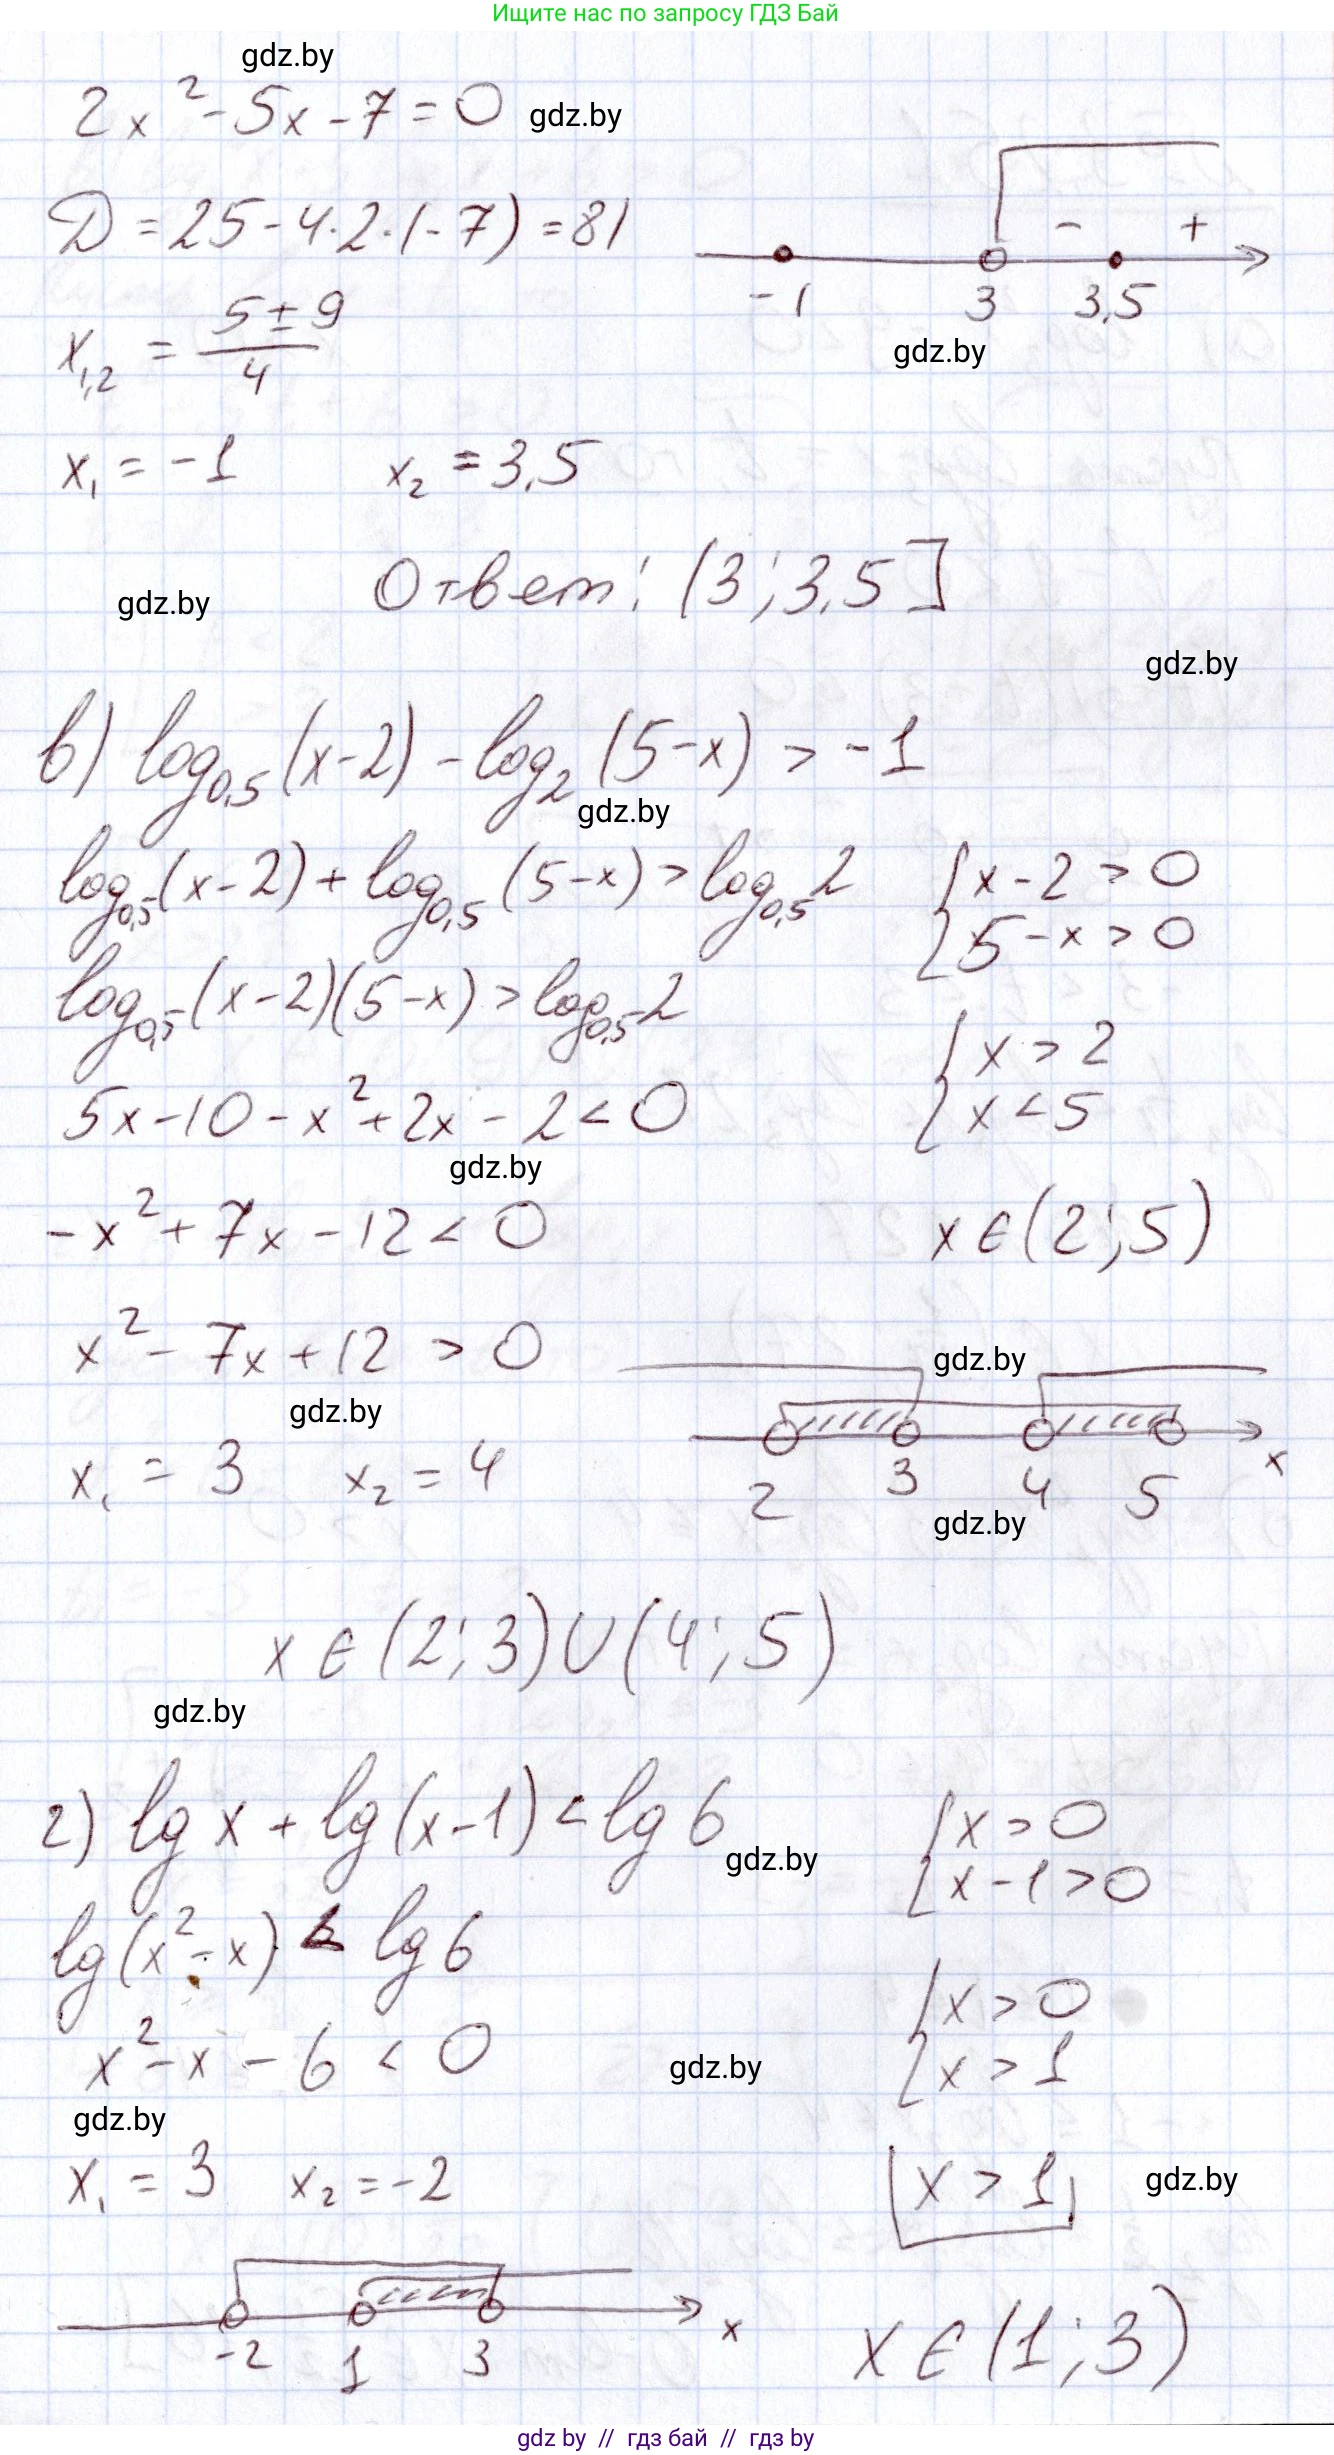 Ищите нас по запросу ГДЗ Бай
gdz.by
2x² - 5x - 7 = 0
gdz.by
D = 25 - 4·2·(-7) = 81
- +
-1 3 3,5
gdz.by
x₁,₂ = (5 ± 9)/4
x₁ = -1 x₂ = 3,5
Ответ: (3; 3,5]
gdz.by
gdz.by
в) log₀,₅(x-2) - log₂(5-x) > -1
gdz.by
log₀,₅(x-2) + log₀,₅(5-x) > log₀,₅2
{ x-2 > 0
5-x > 0
log₀,₅(x-2)(5-x) > log₀,₅2
{ x > 2
x < 5
5x - 10 - x² + 2x - 2 < 0
gdz.by
-x² + 7x - 12 < 0
x ∈ (2; 5)
x² - 7x + 12 > 0
gdz.by
gdz.by
x₁ = 3 x₂ = 4
2 3 4 5 x
gdz.by
x ∈ (2; 3) ∪ (4; 5)
gdz.by
г) lg x + lg(x-1) < lg 6
gdz.by
{ x > 0
x - 1 > 0
lg(x² - x) < lg 6
{ x > 0
x > 1
x² - x - 6 < 0
gdz.by
gdz.by
x₁ = 3 x₂ = -2
x > 1
gdz.by
-2 1 3 x
x ∈ (1; 3)
gdz by // гдз бай // гдз by